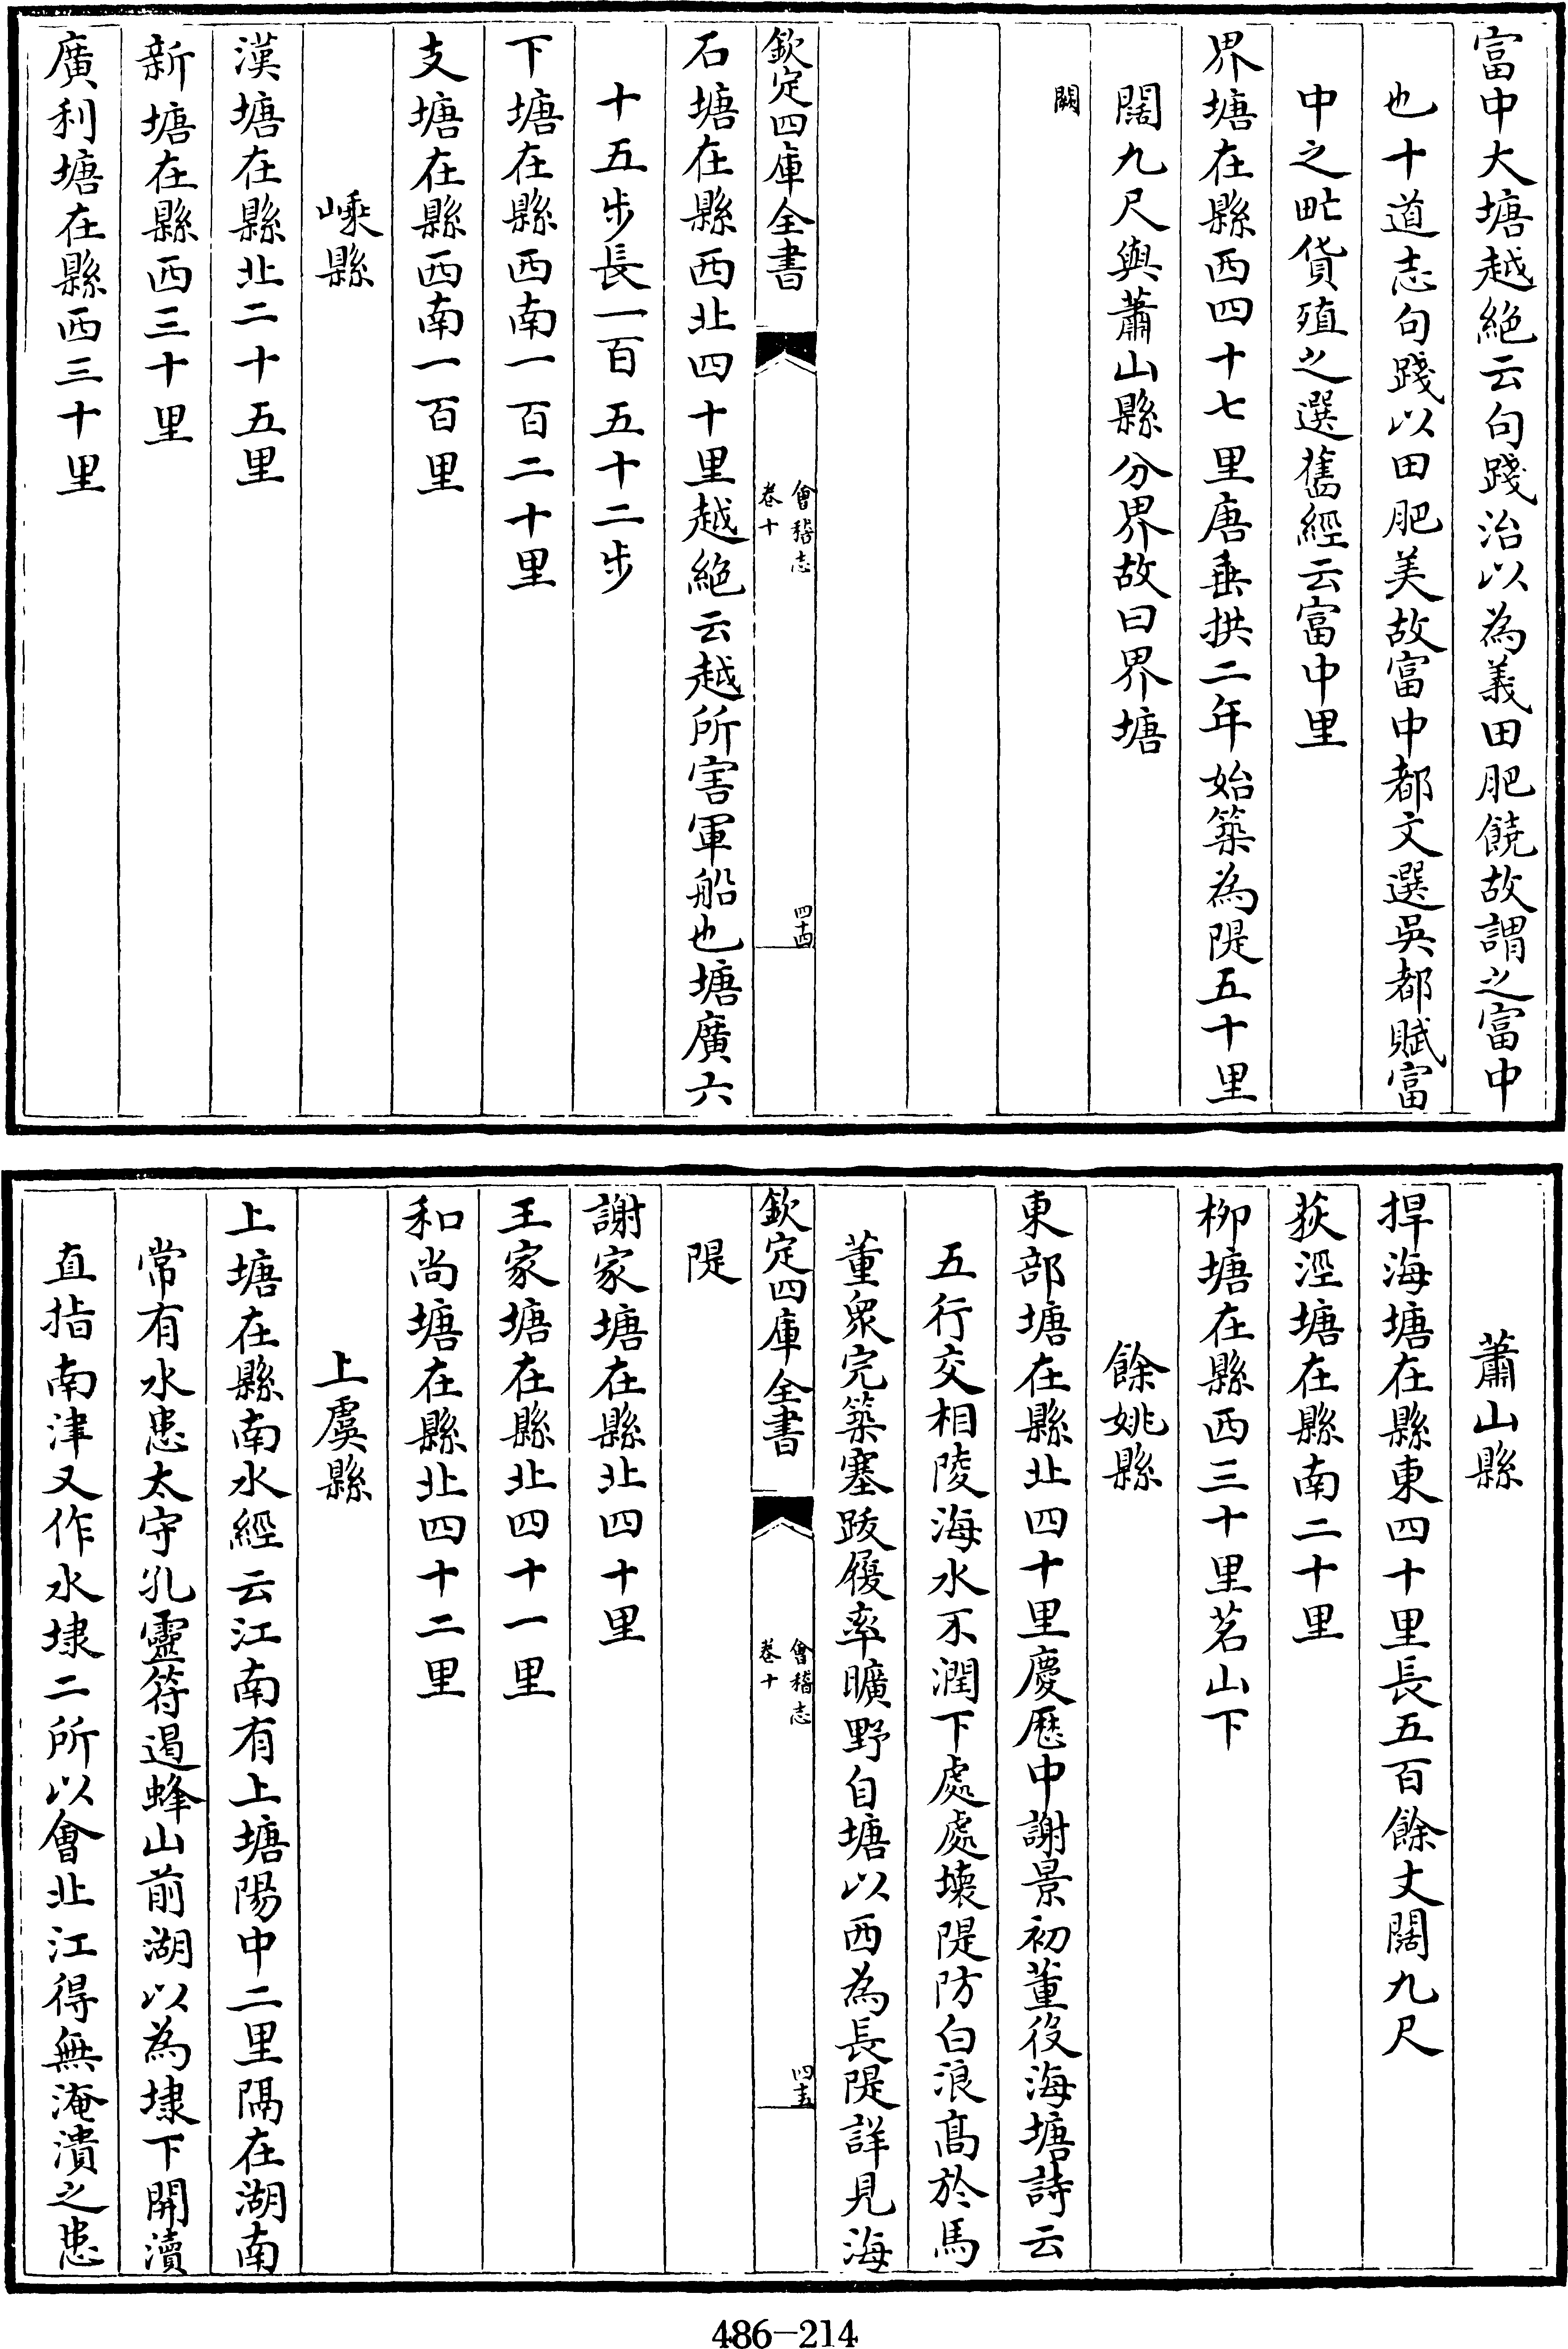 富中大塘越絶云句踐治以為義田肥饒故謂之富中
也十道志句踐以田肥美故富中都文選吳都賦富
中之甿貨殖之選舊經云富中里
界塘在縣西四十七里唐垂拱二年始築為隄五十里
闊九尺與蕭山縣分界故曰界塘
闕
欽定四庫全書
會稽志
卷十
四十四
石塘在縣西北四十里越絶云越所害軍船也塘廣六
十五步長一百五十二步
下塘在縣西南一百二十里
支塘在縣西南一百里
嵊縣
漢塘在縣北二十五里
新塘在縣西三十里
廣利塘在縣西三十里
蕭山縣
捍海塘在縣東四十里長五百餘丈闊九尺
荻涇塘在縣南二十里
柳塘在縣西三十里茗山下
餘姚縣
東部塘在縣北四十里慶歷中謝景初董役海塘詩云
五行交相陵海水不潤下處處壞隄防白浪髙於馬
董衆完築塞跋履率曠野自塘以西為長隄詳見海
欽定四庫全書
會稽志
卷十
四十五
隄
謝家塘在縣北四十里
王家塘在縣北四十一里
和尚塘在縣北四十二里
上虞縣
上塘在縣南水經云江南有上塘陽中二里隔在湖南
常有水患太守孔靈符遏蜂山前湖以為埭下開瀆
直指南津又作水埭二所以會北江得無淹潰之患
486-214